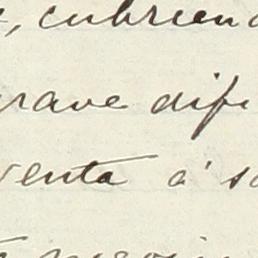 , cubrien
grave difi
venta á s